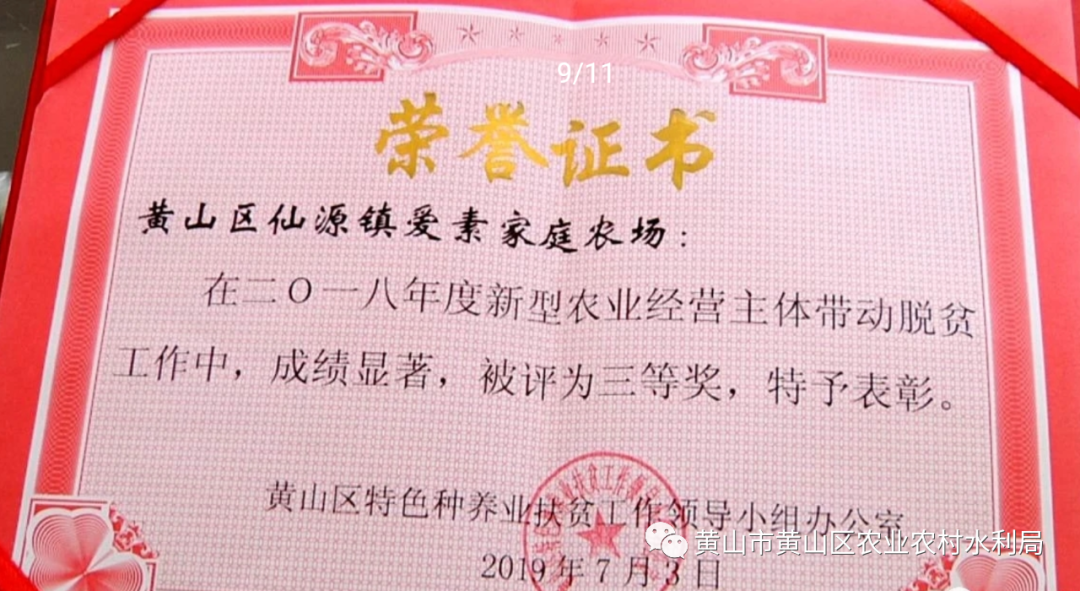 9/11
荣誉证书
黄山区仙源镇爱素家庭农场：
在二〇一八年度新型农业经营主体带动脱贫
工作中，成绩显著，被评为三等奖，特予表彰。
黄山区特色种养业扶贫工作领导小组办公室
2019年7月3日
黄山市黄山区农业农村水利局